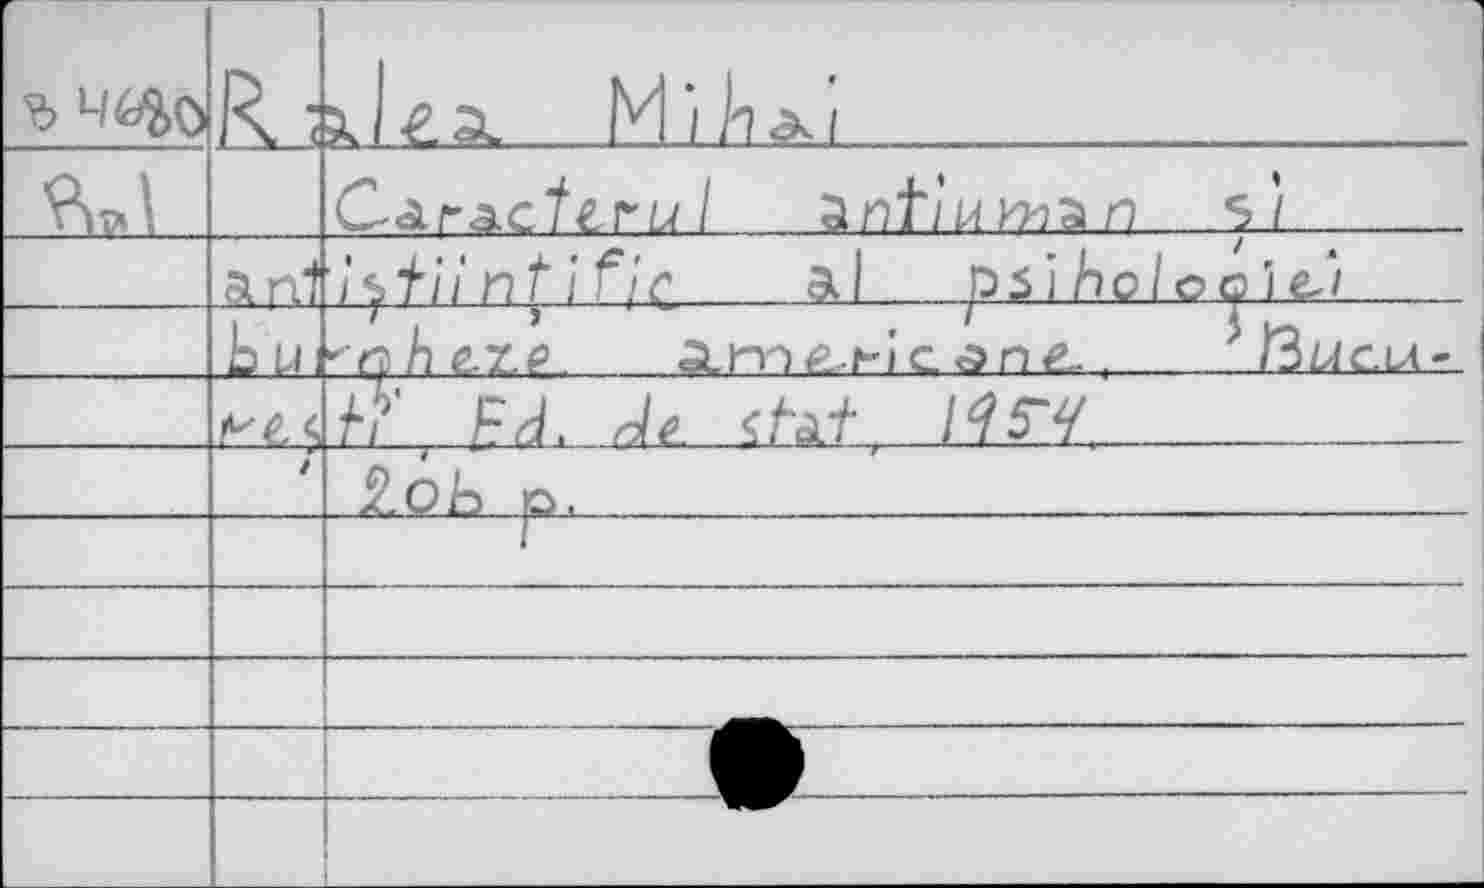 Ralea Mihai
Ral Caracterul antiuman și
antiștiințific al psihologiei
burgheze americane. Bucu-
rești, Ed. de stat, 1954.
206 p.